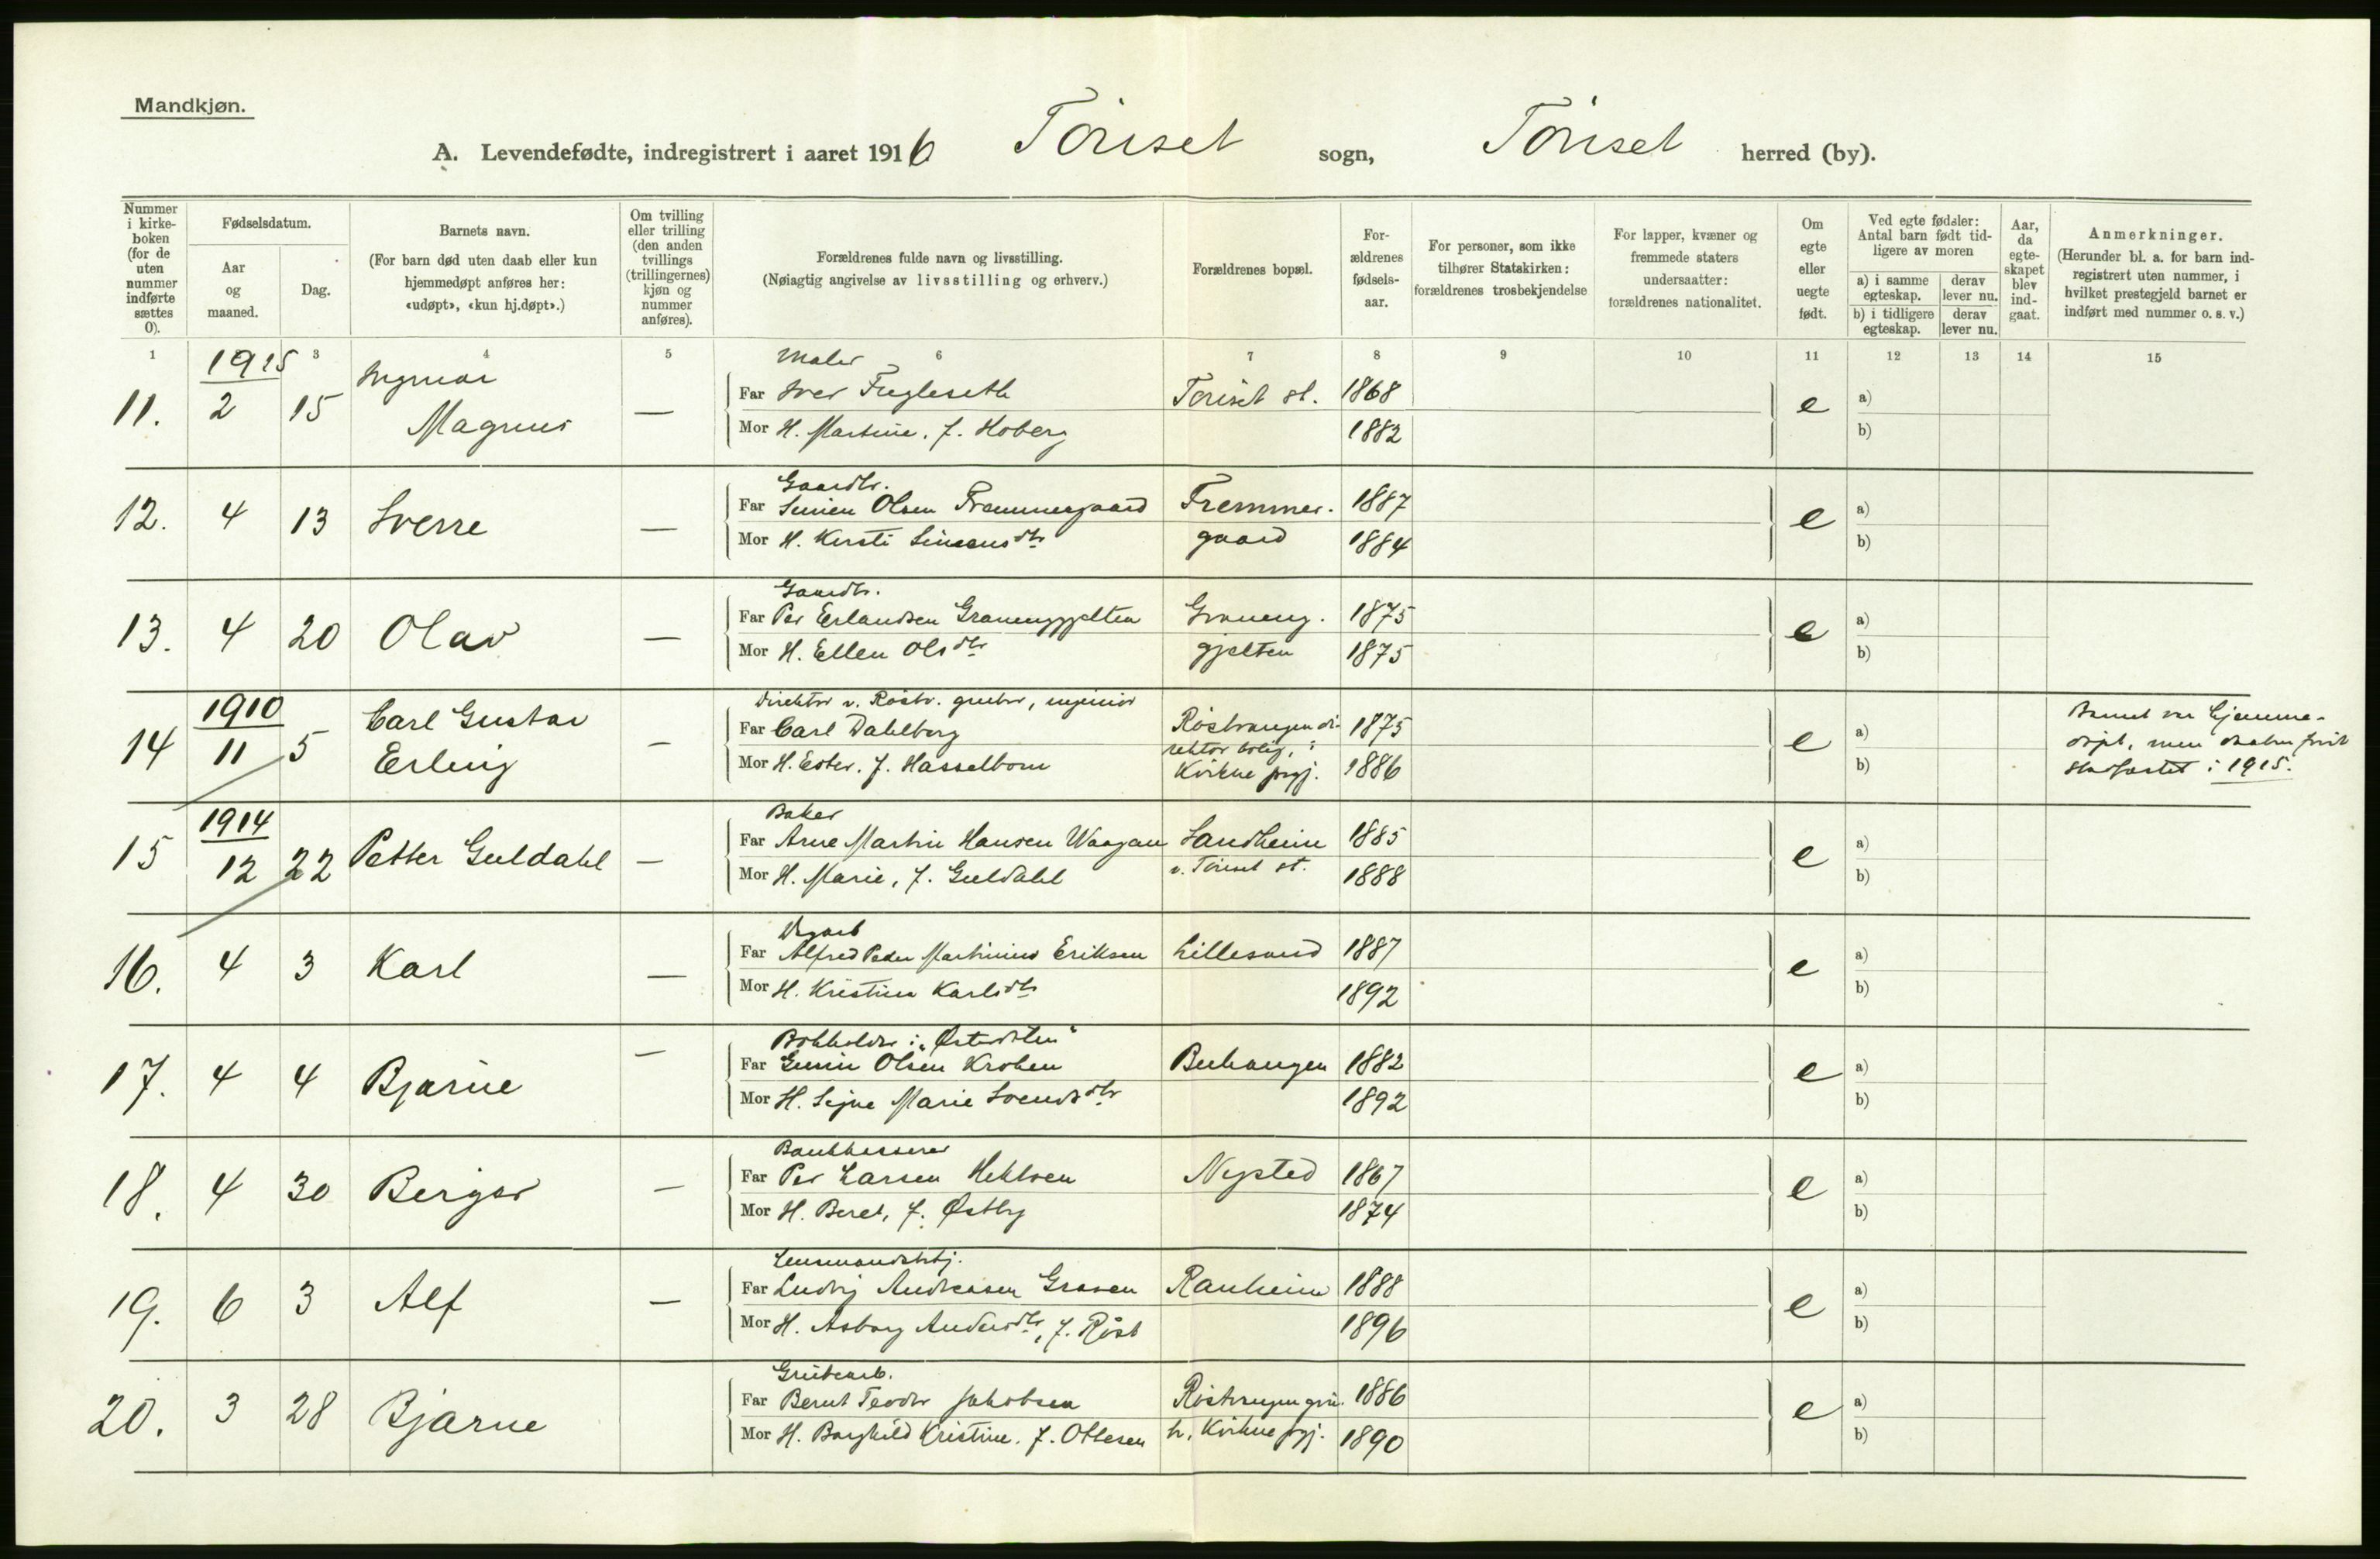 Mandkjøn.
A. Levendefødte, indregistrert i aaret 1916 Tönset sogn, Tönset herred (by).
Nummer i kirke- boken (for de uten nummer indførte sættes 0).
Fødselsdatum.
Aar og maaned.
Dag.
Barnets navn.
(For barn død uten daab eller kun hjemmedøpt anføres her: «udøpt», «kun hj.døpt».)
Om tvilling eller trilling (den anden tvillings (trillingernes) kjøn og nummer anføres).
Forældrenes fulde navn og livsstilling.
(Nøiagtig angivelse av livsstilling og erhverv.)
Forældrenes bopæl.
For- ældrenes fødsels- aar.
For personer, som ikke tilhører Statskirken: forældrenes trosbekjendelse
For lapper, kvæner og fremmede staters undersaatter: forældrenes nationalitet.
Om egte eller uegte født.
Ved egte fødsler: Antal barn født tid- ligere av moren
a) i samme egteskap.
derav lever nu.
b) i tidligere egteskap.
derav lever nu.
Aar, da egte- skapet blev ind- gaat.
Anmerkninger.
(Herunder bl. a. for barn ind- registrert uten nummer, i hvilket prestegjeld barnet er indført med nummer o. s. v.)
1 3 4 5 6 7 8 9 10 11 12 13 14 15
1915 Ingmar Maler
11. 2 15 Magnus — Far Iver Fugleseth Tönset st. 1868 e a)
Mor H. Martine, f. Hoberg 1882 b)
Gaardbr.
12. 4 13 Sverre — Far Simen Olsen Fremmergaard Fremmer- 1887 e a)
Mor H. Kirsti Simensdtr gaard 1884 b)
Gaardbr.
13. 4 20 Olav — Far Per Erlandsen Graneng gjelten Graneng- 1875 e a)
Mor H. Ellen Olsdtr gjelten 1875 b)
1910 Direktør v. Röstv. gruber, ingeniør
14 11 5 Carl Gustav Erling — Far Carl Dahlberg Röstvangen di- 1875 e a)
rektør bolig, i
Mor H. Ester, f. Hasselbom Kvikne prgj. 1886 b)
Barnet var hjemme-
døpt, men
i 1915.
1914 Baker
15 12 22 Petter Guldahl — Far Arne Martin Hansen Waagan Sandheim 1885 e a)
Mor H. Marie, f. Guldahl v. Tönset st. 1888 b)
16. 4 3 Karl — Far Alfred Peder Martinius Eriksen Lillesund 1887 e a)
Mor H. Kristine Karlsdtr 1892 b)
Bokholder i „Østerdølen“
17. 4 4 Bjarne — Far Gunnar Olsen Kroken 1882 e a)
Mor H. Signe Marie Svendsdtr 1892 b)
Bankkasserer
18. 4 30 Berger — Far Per Larsen Nysted 1867 e a)
Mor H. Beret, f. Østby 1874 b)
Lensmandsbtj.
19. 6 3 Alf — Far Ludvig Andreasen Grasen Ranheim 1888 e a)
Mor H. Asborg Andersdtr, f. Röst 1896 b)
Grubearb.
20. 3 28 Bjarne Far Bernt Teodor Jakobsen Röstvangen gru- 1886 e a)
Mor H. Borghild Kristine, f. Ottesen br, Kvikne prgj. 1890 b)